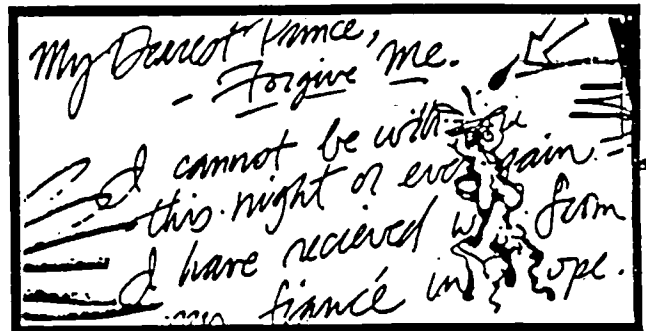 My Dearest Prince,
- Forgive Me.
I cannot be with
this night or ever again
I have recieved from
my fiancé in